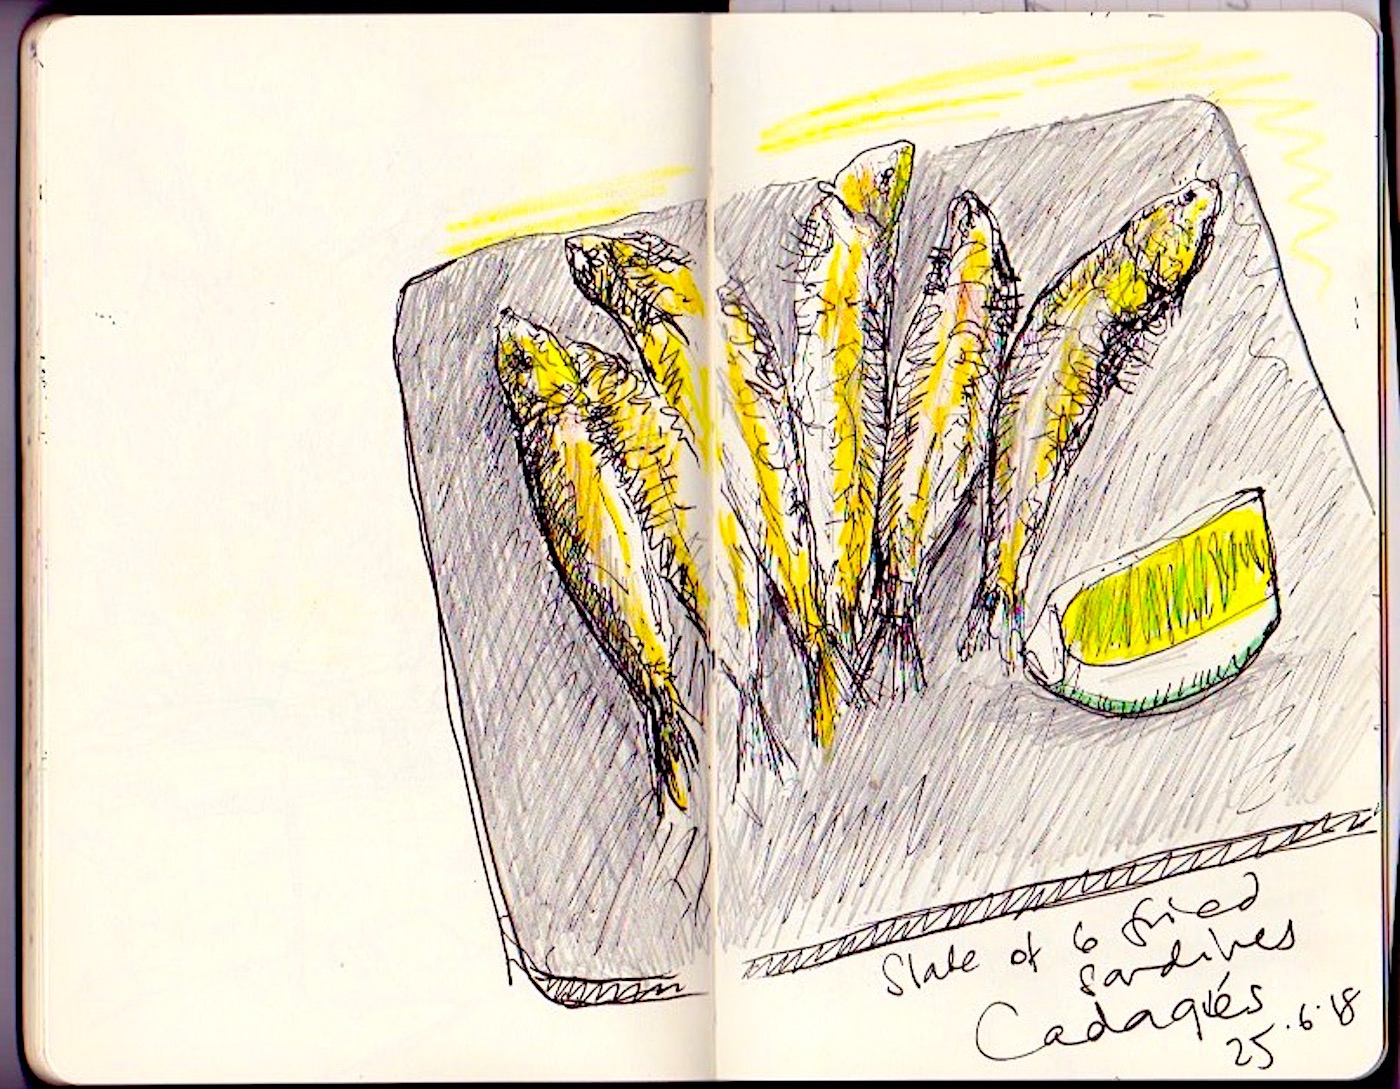 Slate of 6 fried
sardines
Cadaqués
25.6.18